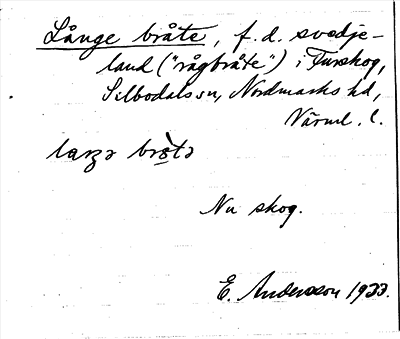 Långe bråte, f. d. svedje-
land ("rågbråte") i Turskog,
Silbodals sn, Nordmarks hd,
Värml. l.
laŋə brò̱tə
Nu skog.
E. Andersson 1933.